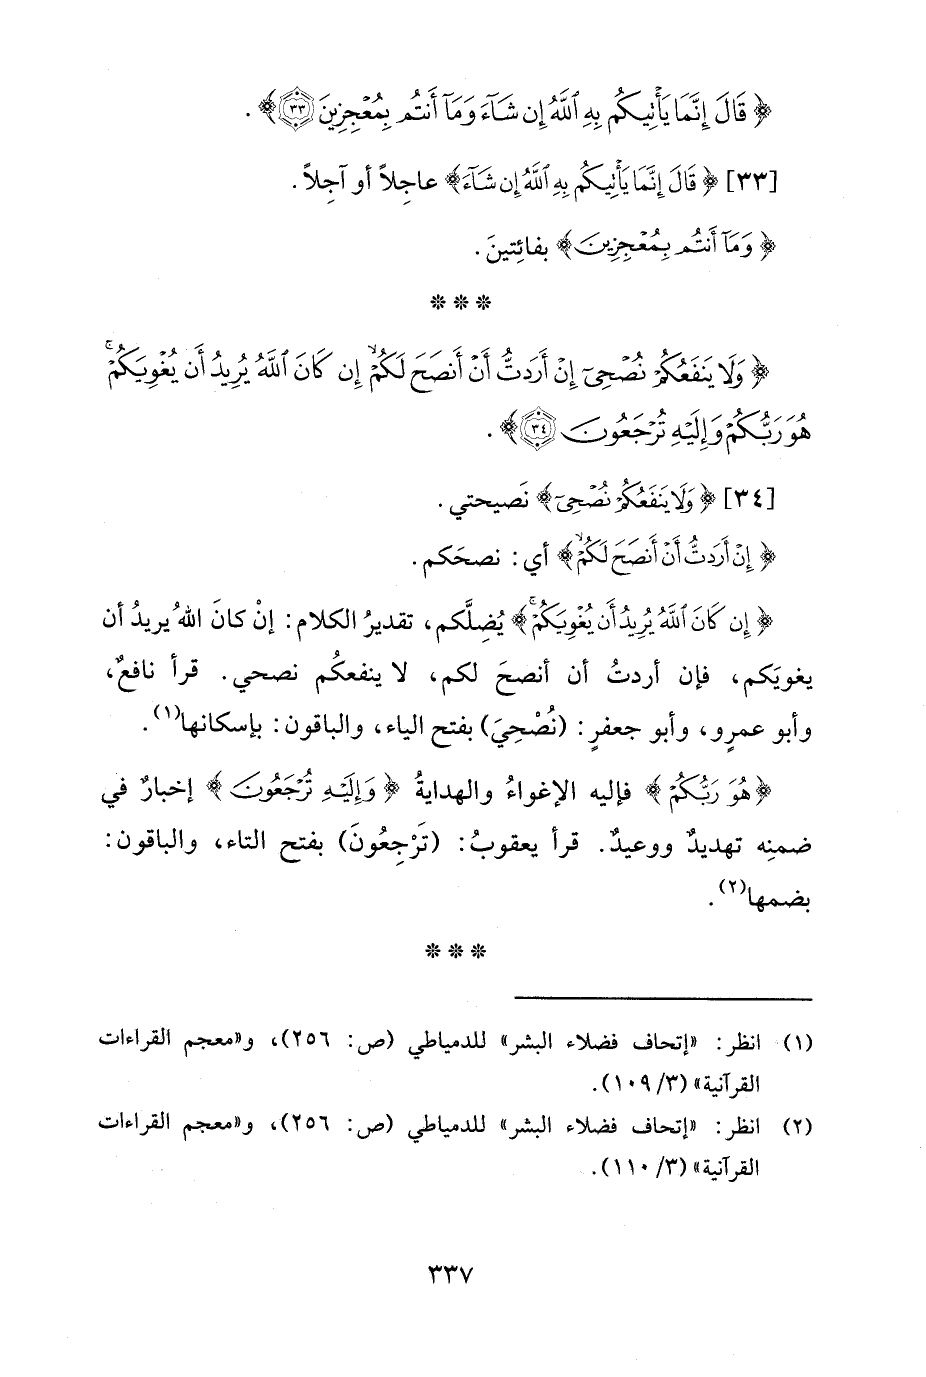 ﴿قَالَ إِنَّمَا يَأْتِيكُم بِهِ ٱللَّهُ إِن شَآءَ وَمَآ أَنتُم بِمُعْجِزِينَ ٣٣﴾.
[٣٣] ﴿قَالَ إِنَّمَا يَأْتِيكُم بِهِ ٱللَّهُ إِن شَآءَ﴾ عاجِلاً أو آجِلاً.
﴿وَمَآ أَنتُم بِمُعْجِزِينَ﴾ بفائِتينَ.
* * *
﴿وَلَا يَنفَعُكُمْ نُصْحِىٓ إِنْ أَرَدتُّ أَنْ أَنصَحَ لَكُمْ إِن كَانَ ٱللَّهُ يُرِيدُ أَن يُغْوِيَكُمْ ۚ
هُوَ رَبُّكُمْ وَإِلَيْهِ تُرْجَعُونَ ٣٤﴾.
[٣٤] ﴿وَلَا يَنفَعُكُمْ نُصْحِىٓ﴾ نَصيحتي.
﴿إِنْ أَرَدتُّ أَنْ أَنصَحَ لَكُمْ﴾ أي: نصحَكم.
﴿إِن كَانَ ٱللَّهُ يُرِيدُ أَن يُغْوِيَكُمْ ۚ﴾ يُضِلَّكم، تقديرُ الكلام: إنْ كانَ اللهُ يريدُ أن
يغويَكم، فإن أردتُ أن أنصحَ لكم، لا ينفعكُم نصحي. قرأ نافعٌ،
وأبو عمرٍو، وأبو جعفرٍ: (نُصْحِيَ) بفتح الياء، والباقون: بإسكانها(١).
﴿هُوَ رَبُّكُمْ﴾ فإليه الإغواءُ والهدايةُ ﴿وَإِلَيْهِ تُرْجَعُونَ﴾ إخبارٌ في
ضمنِه تهديدٌ ووعيدٌ. قرأ يعقوبُ: (تَرْجِعُونَ) بفتح التاء، والباقون:
بضمها(٢).
* * *
(١) انظر: «إتحاف فضلاء البشر» للدمياطي (ص: ٢٥٦)، و«معجم القراءات
القرآنية» (٣/ ١٠٩).
(٢) انظر: «إتحاف فضلاء البشر» للدمياطي (ص: ٢٥٦)، و«معجم القراءات
القرآنية» (٣/ ١١٠).
٣٣٧